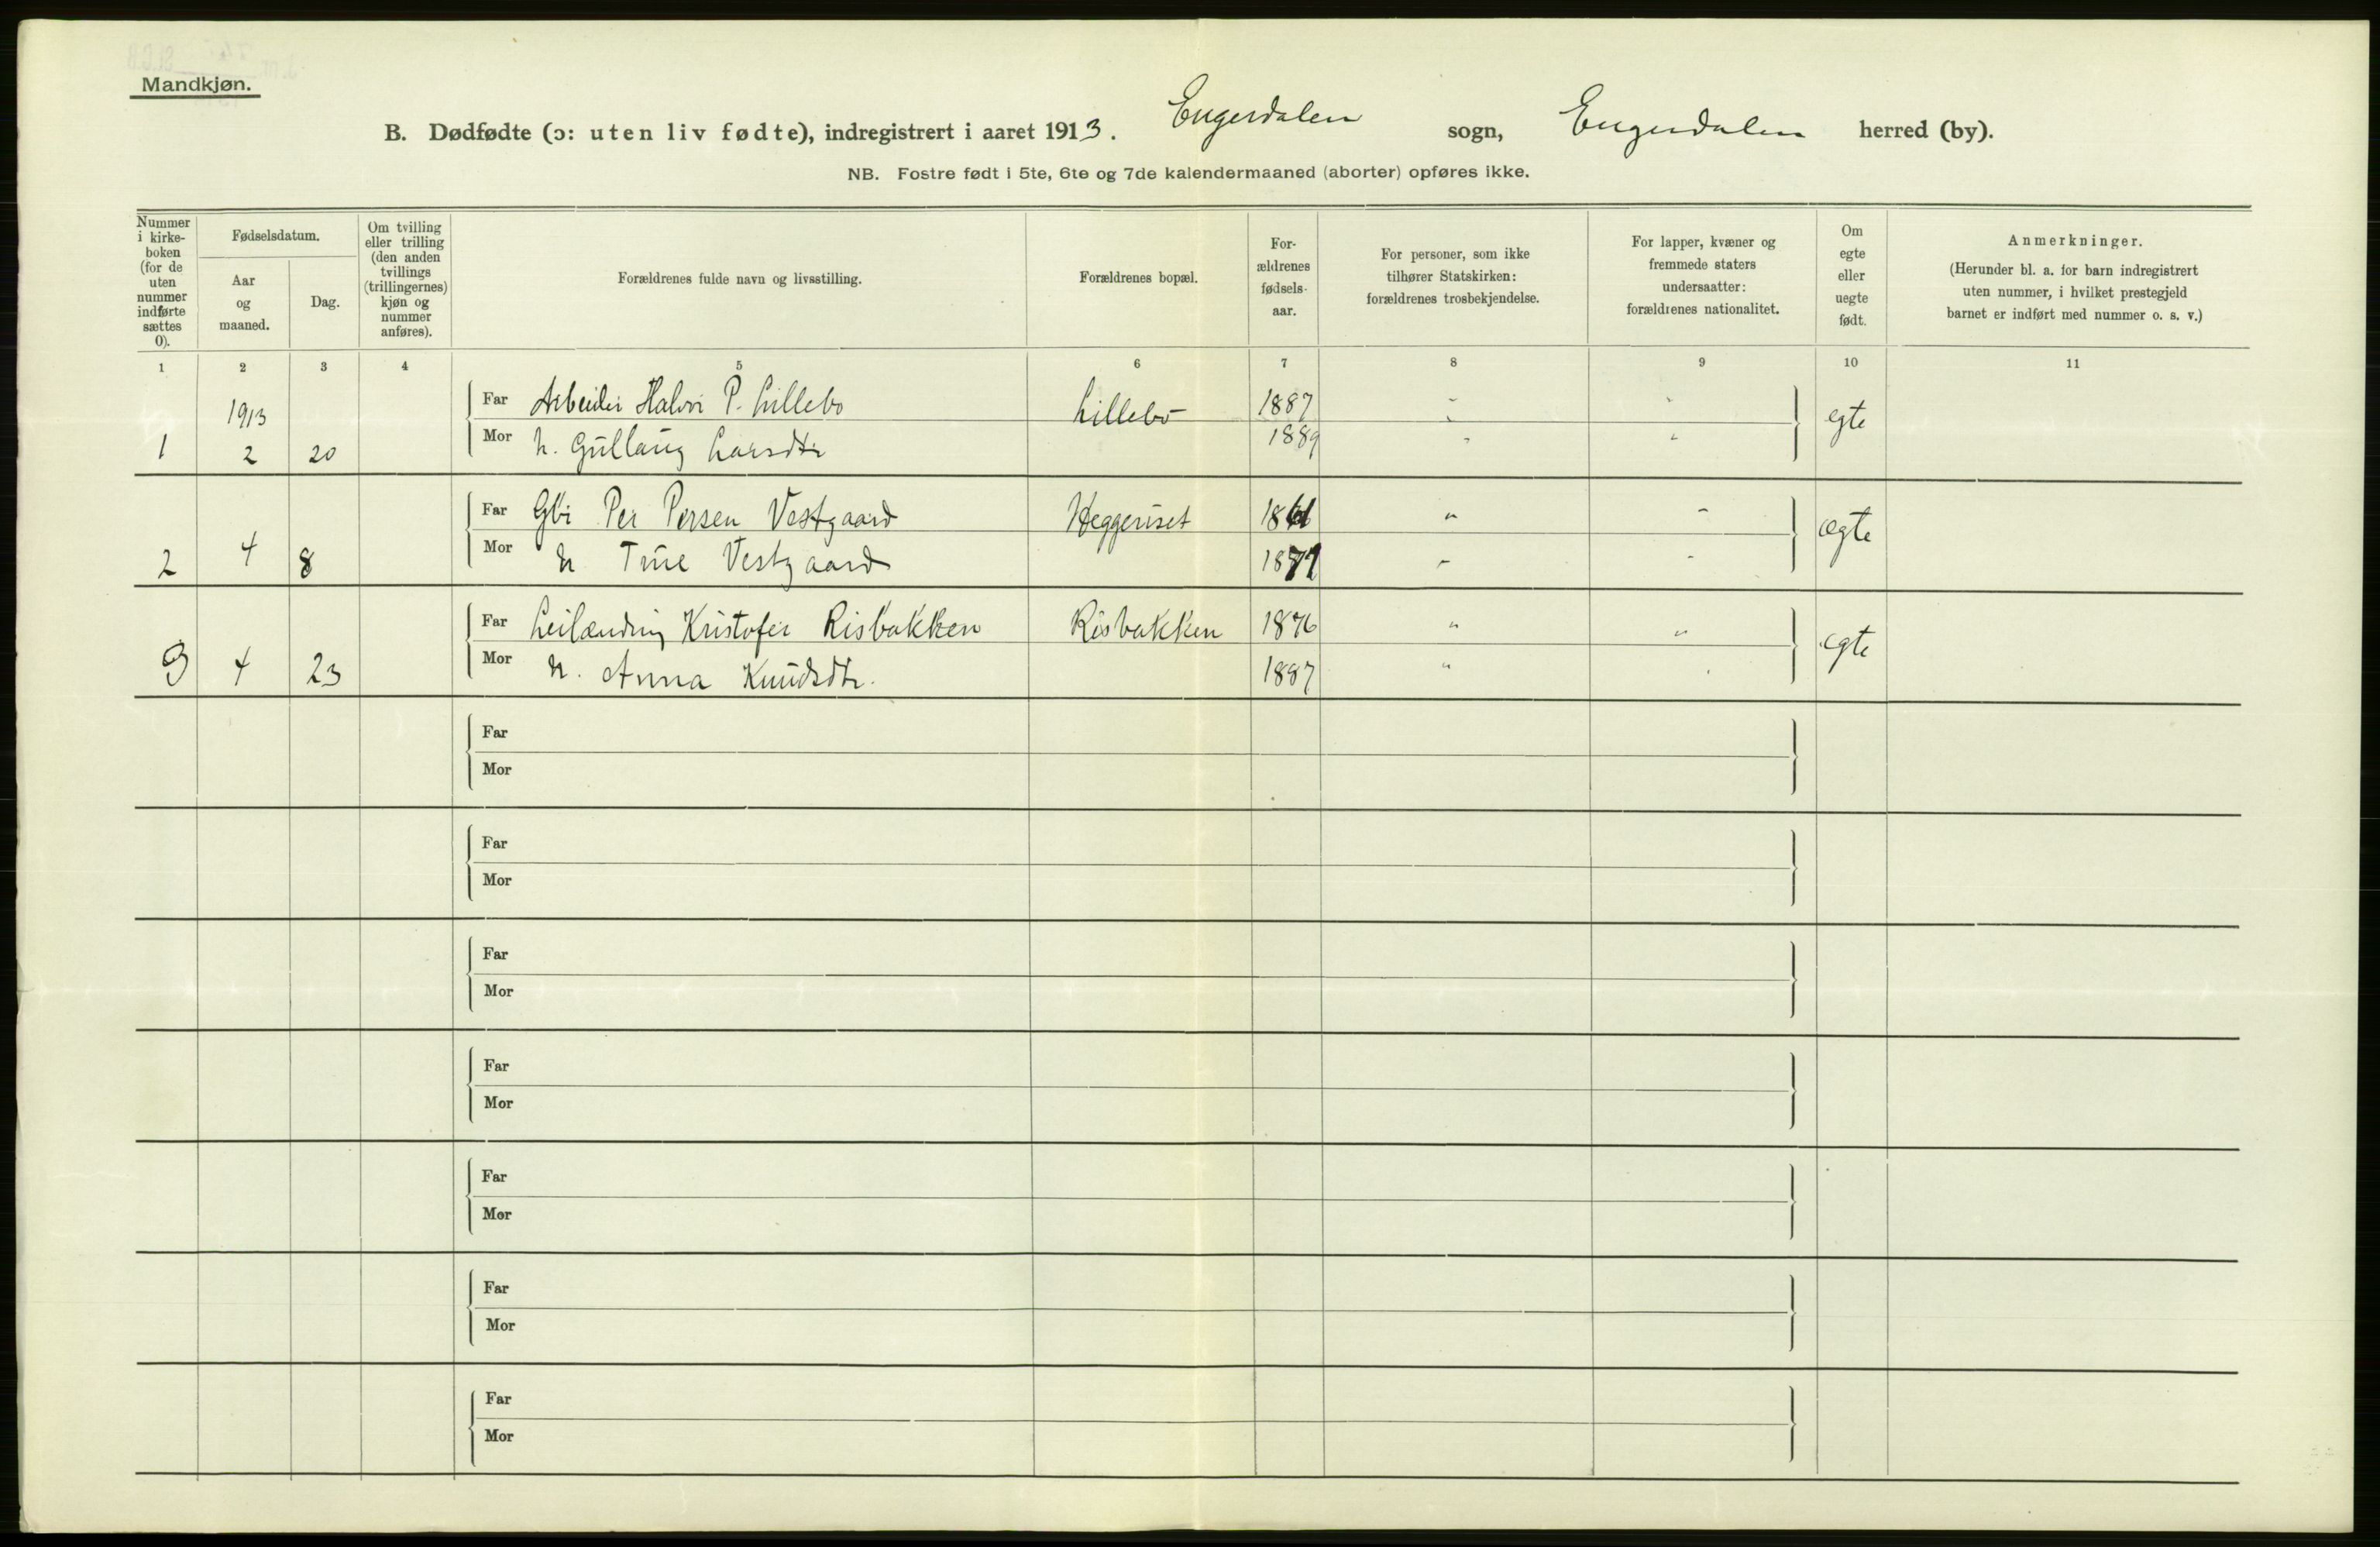 Mandkjøn.
B. Dødfødte (ɔ: uten liv fødte), indregistrert i aaret 1913. Engerdalen sogn, Engerdalen herred (by).
NB. Fostre født i 5te, 6te og 7de kalendermaaned (aborter) opføres ikke.
Nummer
i kirke-
boken
(for de
uten
nummer
indførte
sættes
0).
Fødselsdatum.
Aar
og
maaned.
Dag.
Om tvilling
eller trilling
(den anden
tvillings
(trillingernes)
kjøn og
nummer
anføres).
Forældrenes fulde navn og livsstilling.
Forældrenes bopæl.
For-
ældrenes
fødsels-
aar.
For personer, som ikke
tilhører Statskirken:
forældrenes trosbekjendelse.
For lapper, kvæner og
fremmede staters
undersaatter:
forældrenes nationalitet.
Om
egte
eller
uegte
født.
Anmerkninger.
(Herunder bl. a. for barn indregistrert
uten nummer, i hvilket prestegjeld
barnet er indført med nummer o. s. v.)
1 2 3 4 5 6 7 8 9 10 11
1913
Far Arbeider Halvor P. Lillebo Lillebo 1887 " " egte
1 2 20 Mor h. Gullaug Larsdtr 1889 " "
Far Gbr Per Persen Vestgaard Heggeriset 1861 " " ægte
2 4 8 Mor h Trine Vestgaard 1871 " "
Far Leilænding Kristofer Risbakken Risbakken 1876 " " egte
3 4 23 Mor h. Anna Knudsdtr. 1887 " "
Far
Mor
Far
Mor
Far
Mor
Far
Mor
Far
Mor
Far
Mor
Far
Mor